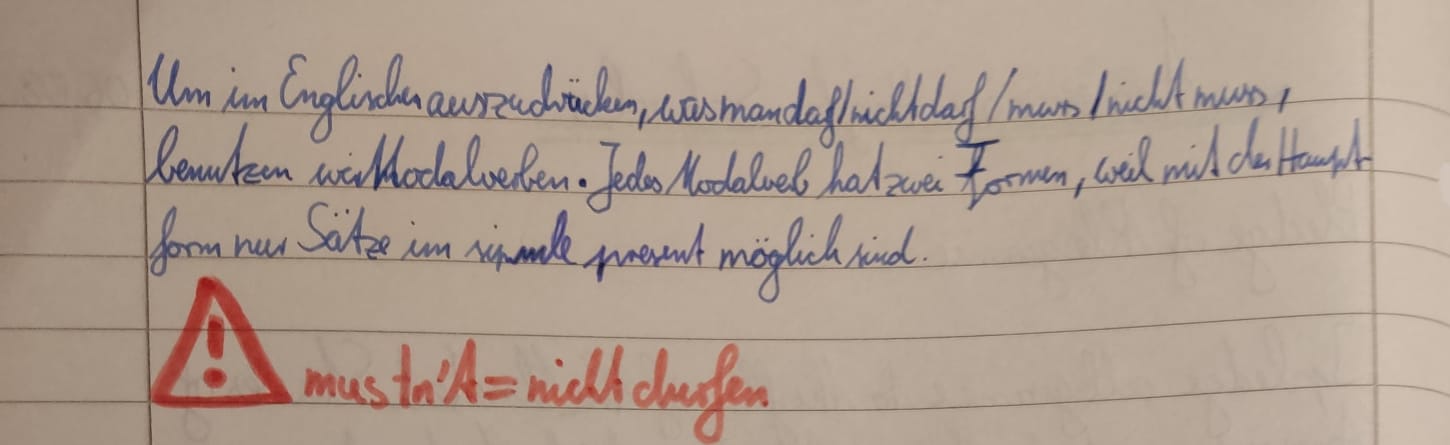 Um im Englischen auszudrücken, was man daf/nicht darf/muss/nicht muss,
benutzen wir Modalverben. Jedes Modalveb hat zwei Formen, weil mit der Haupt-
form nur Sätze im simple present möglich sind.
! mustn't = nicht durfen